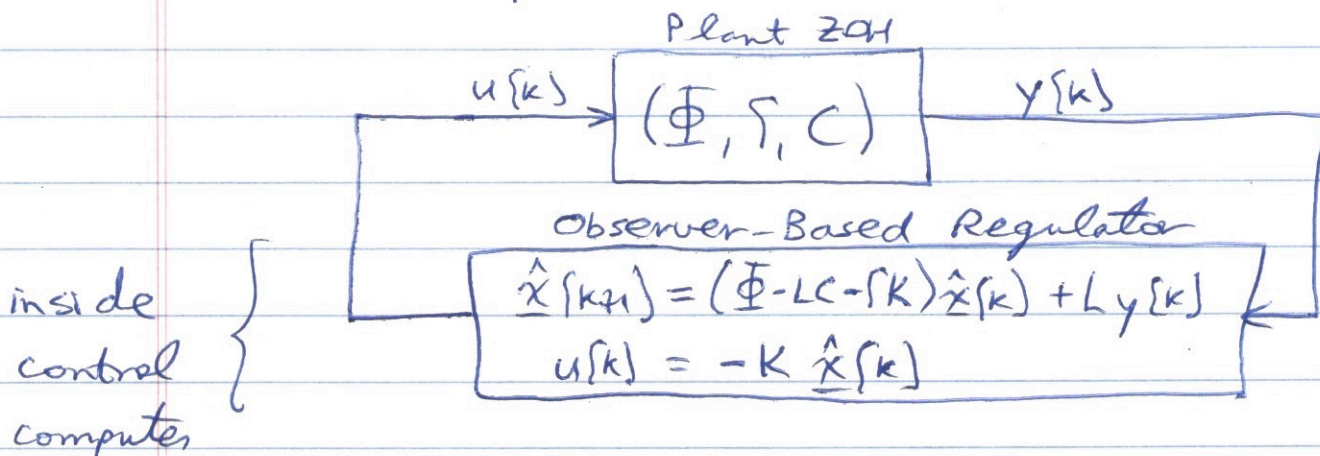 Plant ZOH
u[k]
(Φ, Γ, C)
y[k]
Observer-Based Regulator
inside
control
computer
x̂[k+1] = (Φ-LC-ΓK)x̂[k] + Ly[k]
u[k] = -K x̂[k]